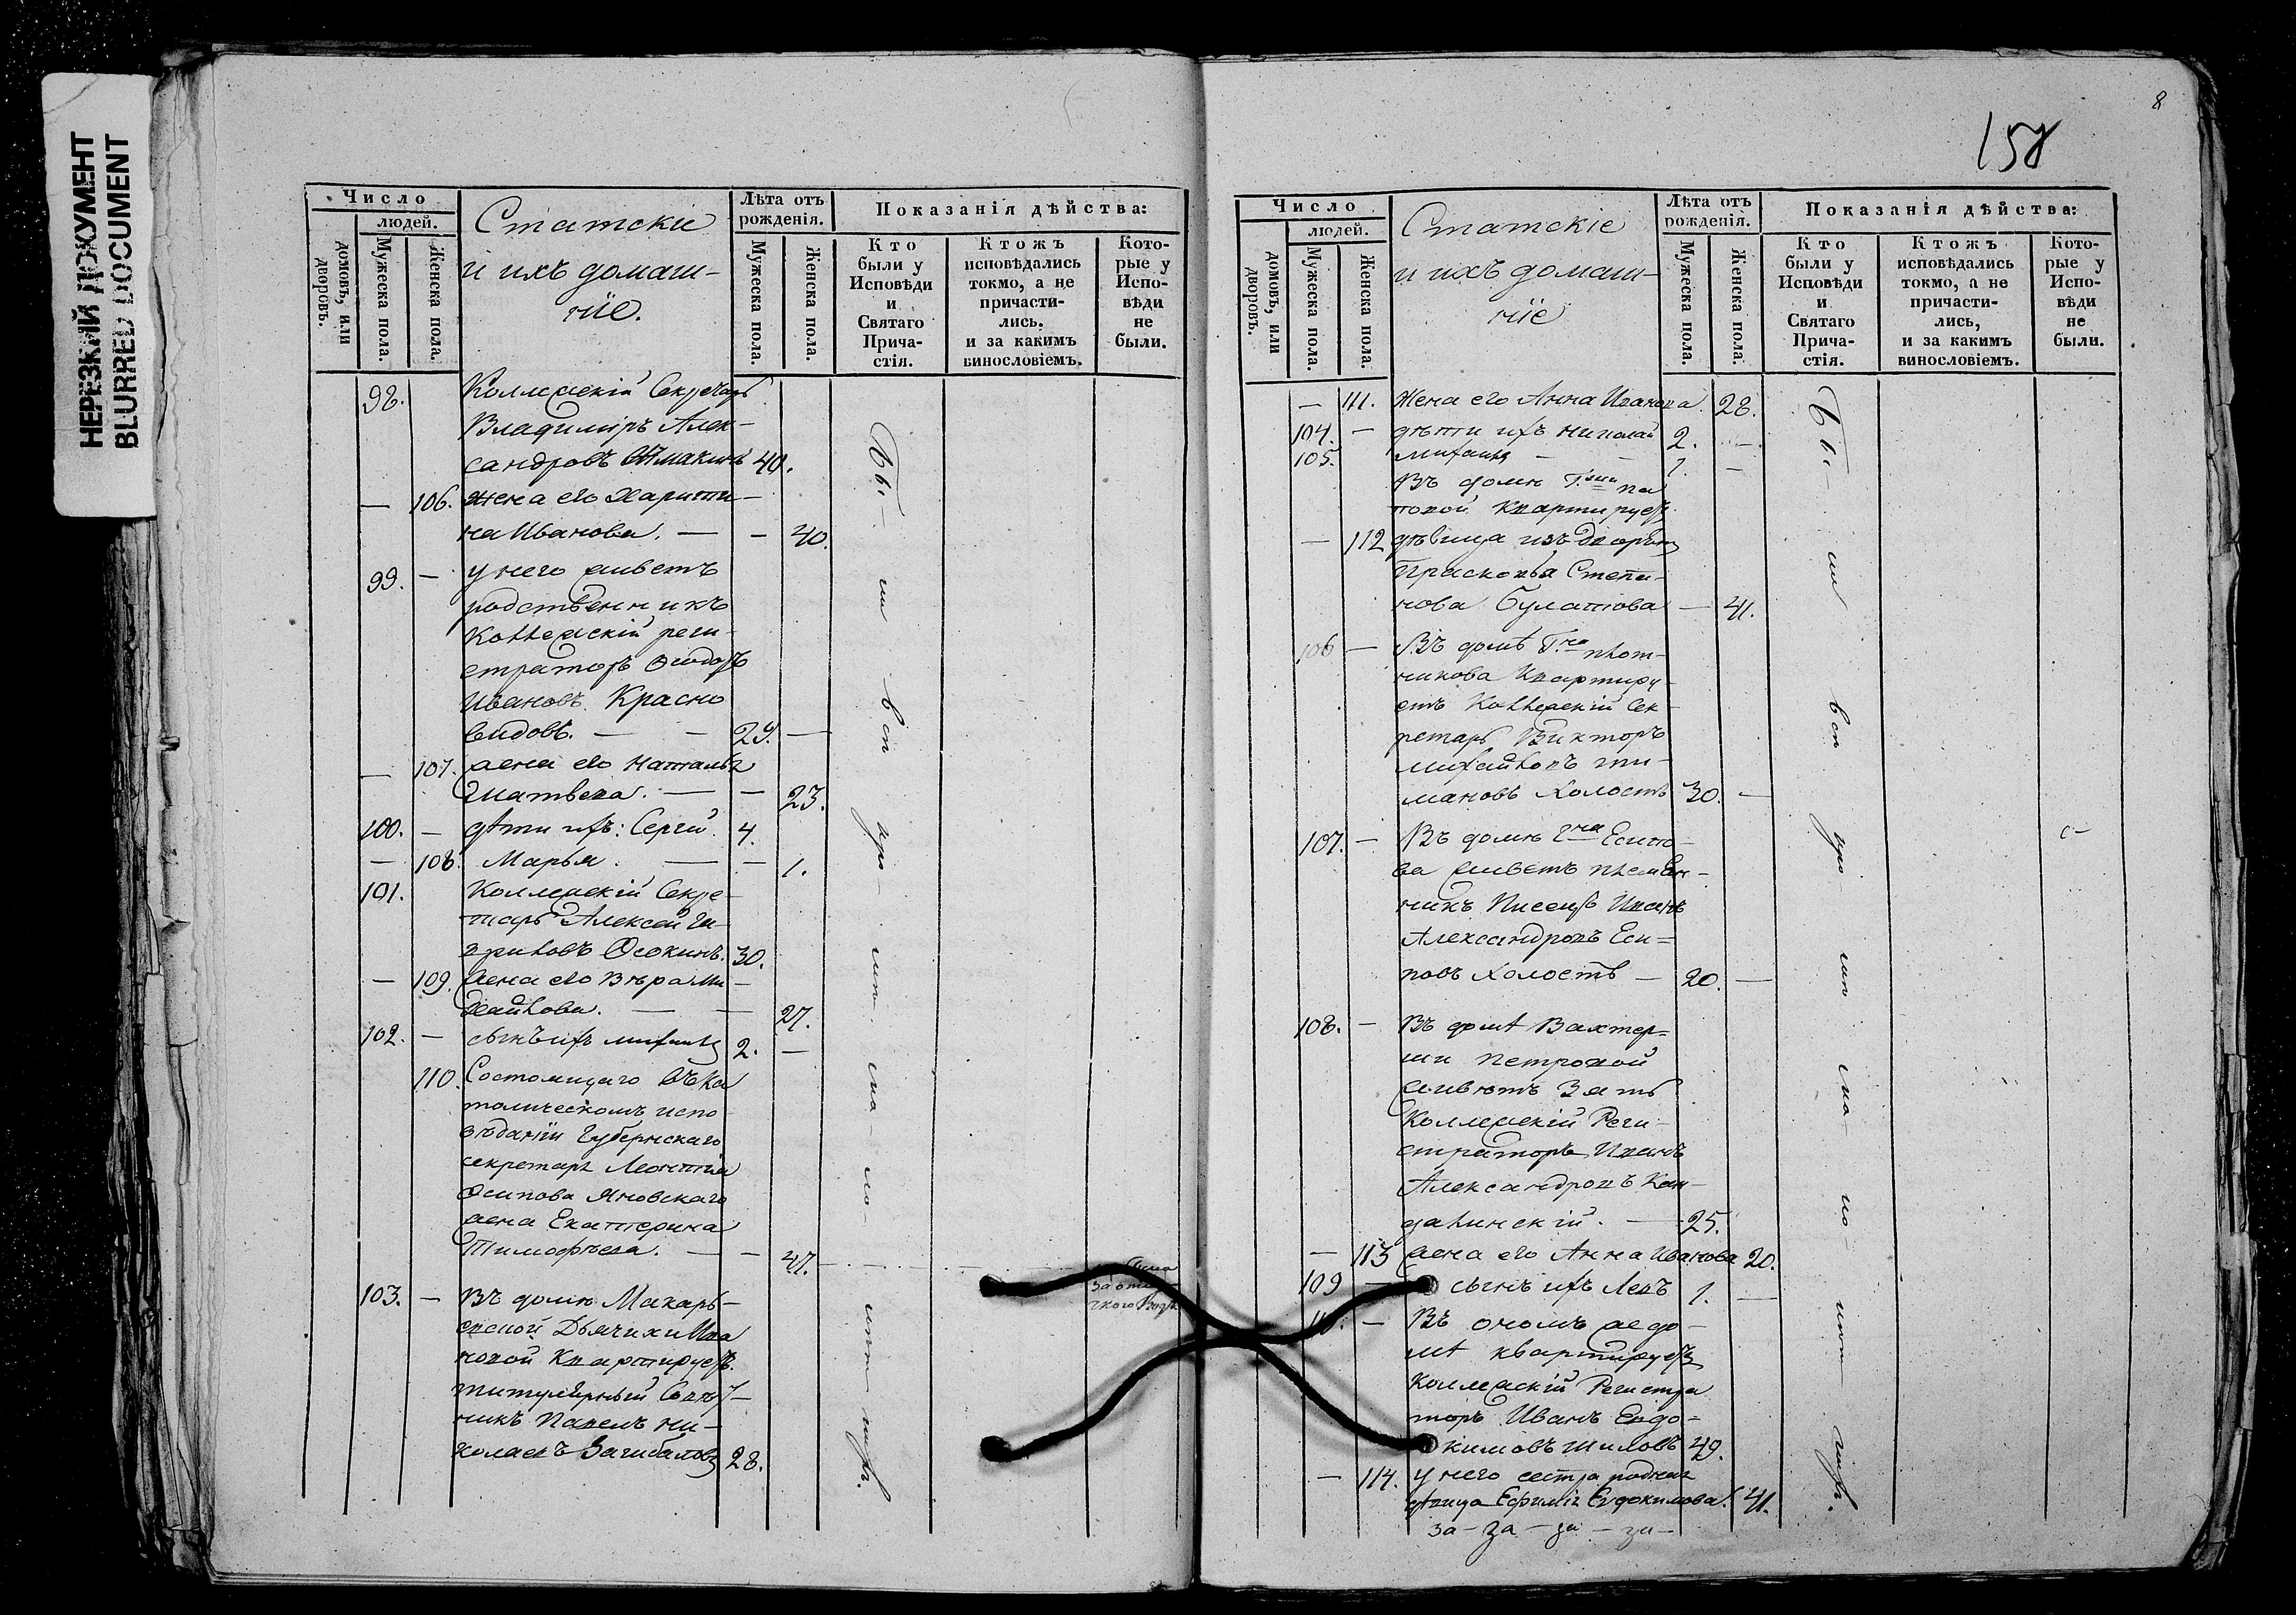 НЕРЕЗКИЙ ДОКУМЕНТ
BLURRED DOCUMENT
Число
людей.
домовъ, или дворовъ.
Мужеска пола.
Женска пола.
Статскiе
и ихъ домаш-
нiе.
Лѣта отъ рожденiя.
Мужеска пола.
Женска пола.
Показанiя дѣйства:
Кто
были у
Исповѣди
и
Святаго
Прича-
стiя.
Ктожъ
исповѣдались
токмо, а не
причасти-
лись.
и за какимъ
винословiемъ.
Кото-
рые у
Испо-
вѣди
не
были.
98. Коллежскiй Секретарь
Владимiръ Алек-
сандровъ 40.
— 106. жена его Харити-
на Иванова. — — 40.
99. — у него живетъ
родственникъ
Коллежскiй реги-
страторъ Ѳеодоръ
Ивановъ Красно
видовъ. — — 29. —
— 107. жена его Наталья
Матвеева. — — 23.
100. — дѣти ихъ: Сергѣй 4.
— 108. Марья. — — 1.
101. Коллежскiй Секре-
тарь Алексей Га-
вриловъ Осокинъ. 30.
— 109. жена его Вѣра Ми-
хайлова. — — 27.
102. — сынъ ихъ Михаилъ 2. —
110. Состоящаго въ Ка
толическомъ испо
вѣданiи Губернскаго
секретаря Леонтiя
Осипова Яновскаго
жена Екатерина
Тимофѣева. — — 47.
103. — Въ домѣ Макарь-
евской Дьячихи Ива
новой Квартируетъ
титулярный Совѣт-
никъ Павелъ Ни-
колаевъ Загибаловъ 28.
8
158
Число
людей.
домовъ, или дворовъ.
Мужеска пола.
Женска пола.
Статскiе
и ихъ домаш-
нiе
Лѣта отъ рожденiя.
Мужеска пола.
Женска пола.
Показанiя дѣйства:
Кто
были у
Исповѣди
и
Святаго
Прича-
стiя.
Ктожъ
исповѣдались
токмо, а не
причасти-
лись,
и за какимъ
винословiемъ.
Кото-
рые у
Испо-
вѣди
не
были.
— 111. Жена его Анна Иванова. 28.
104. — дѣти ихъ Николай 2. —
105. Михаилъ — —
Въ домѣ Г.жи По
повой квартируетъ
— 112 дѣвица изъ дворянъ
Прасковья Степа-
нова Булатова — 41.
106 — Въ домѣ Г.на Плот-
никова Квартиру-
етъ Коллежскiй Сек-
ретарь Викторъ
Михайловъ Ти-
мановъ Холостъ 30. —
107. — Въ домѣ Г.на Есипо-
ва живетъ племян-
никъ Писецъ Иванъ
Александровъ Еси=
повъ Холостъ — 20. —
108. — Въ домѣ Вахтер=
ши Петровой
живетъ Зять
Коллежскiй Реги-
страторъ Иванъ
Александровъ Кан-
далинскiй. — 25.
— 113 жена его Анна Иванова 20.
109 — сынъ ихъ Левъ 1. —
— Въ ономъ же до-
мѣ квартируетъ
Коллежскiй Регистра
торъ Иванъ Евдо=
кимовъ Шиловъ 49.
— 114. у него сестра родная
дѣвица Ефимiя Евдокимова. 41.
за — за — за — за —